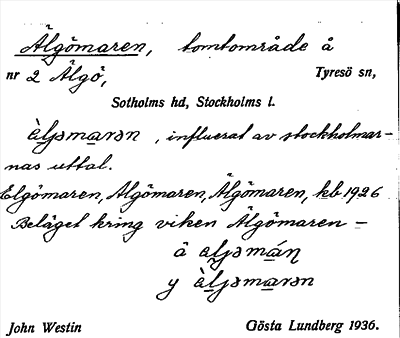 Älgömaren, tomtområde å
nr 2 Älgö, Tyresö sn,
Sotholms hd, Stockholms l.
ὲl̥jəmarən, influerat av stockholmar-
nas uttal.
Elgömaren, Algömaren, Älgömaren, kb 1926
Beläget kring viken Algömaren –
å aljəmáṇ
y ὲljəmarən
John Westin Gösta Lundberg 1936.